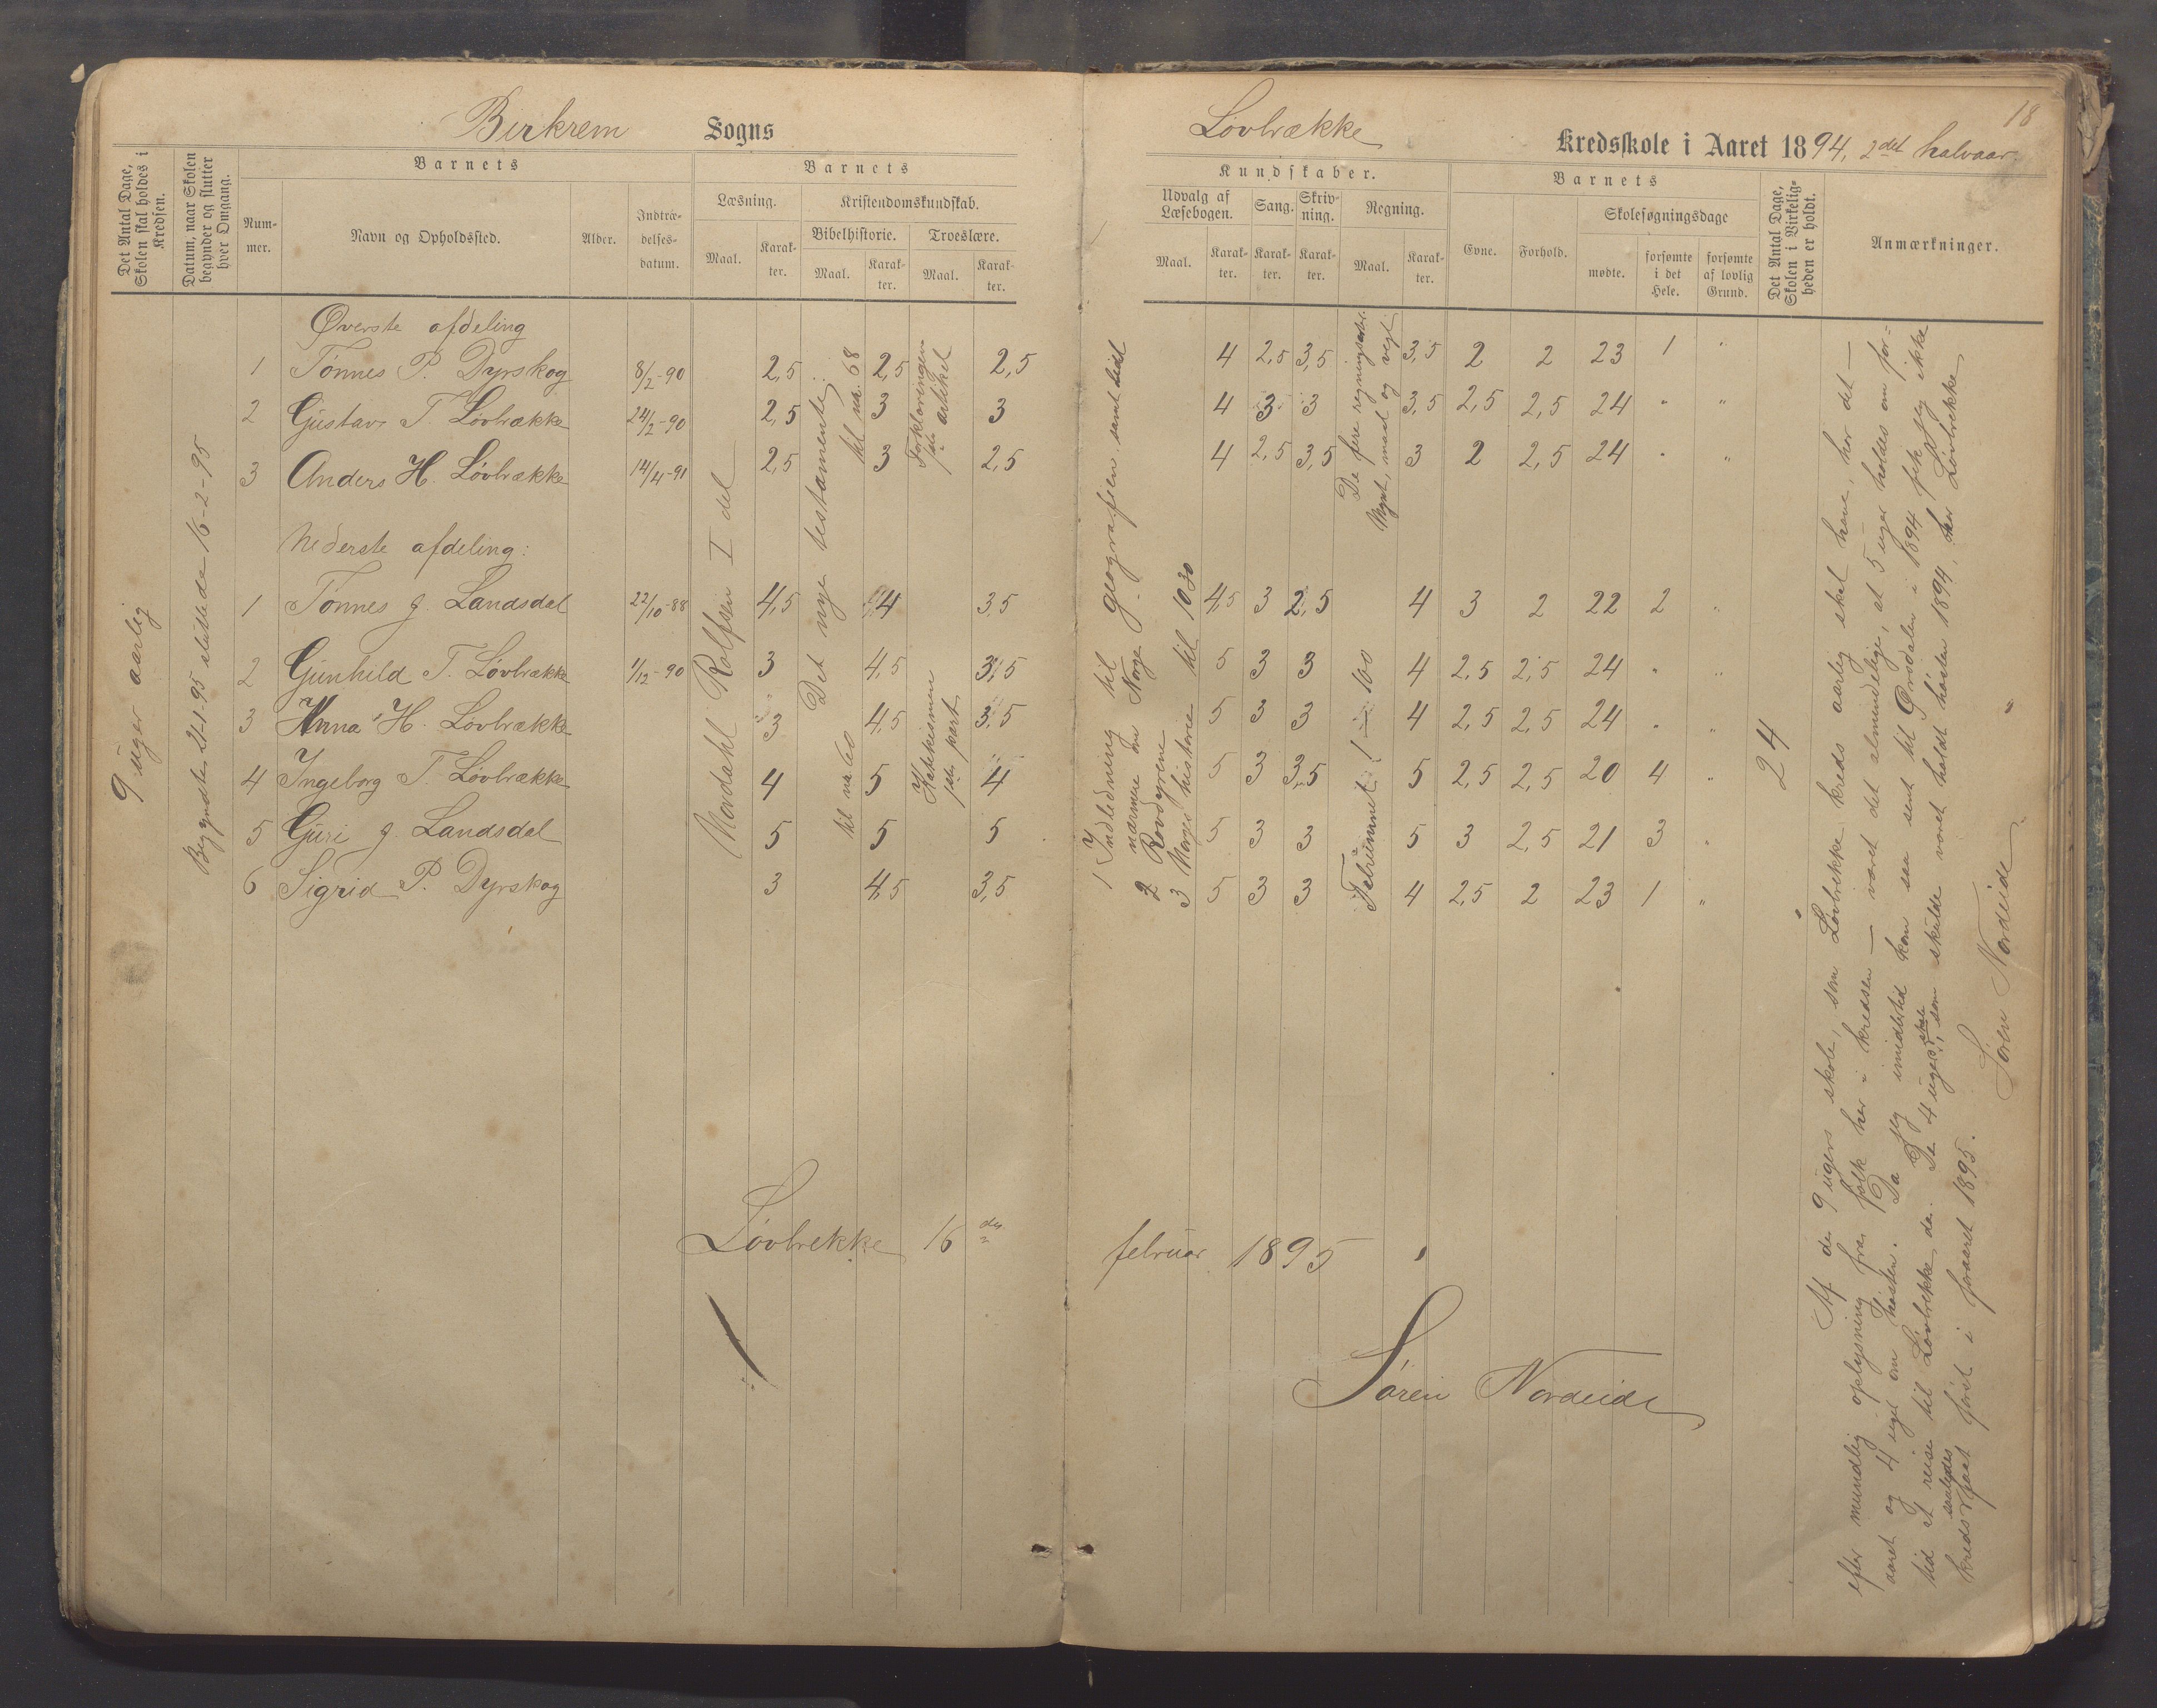 Birkrem Sogns
Det Antal Dage, Skolen skal holdes i Kredsen.
Datum, naar Skolen begynder og slutter hver Omgang.
Barnets
Nummer.
Navn og Opholdssted.
Alder.
Indtrædelsesdatum.
Barnets
Læsning.
Maal. Karakter.
Kristendomskundskab.
Bibelhistorie. Troeslære.
Maal. Karakter. Maal. Karakter.
9 uger aarlig
Begyndte 21-1-95 sluttede 16-2-95
Øverste afdeling
1 Tønnes P. Dyrskog 8/2-90 2,5 2,5 2,5
2 Gustav T. Løvbrække 24/2-90 2,5 3 3
3 Anders H. Løvbrække 14/4-91 2,5 3 2,5
Nederste afdeling:
1 Tønnes G. Landsdal 22/10-88 4,5 4 3,5
2 Gunhild T. Løvbrække 1/12-90 3 4,5 3,5
3 Anna H. Løvbrække 3 4,5 3,5
4 Ingeborg T. Løvbrække 4 5 4
5 Guri G. Landsdal 5 5 5
6 Sigrid P. Dyrskog 3 4,5 3,5
Nordahl Rolfsen I del
Det nye testamente
til no. 68
til no 60
Forklaringen
artikel
Katekismen
part
Løvbrekke 16 de
18
Løvbrække Kredsskole i Aaret 1894, 2det halvaar.
Kundskaber.
Udvalg af Læsebogen.
Maal. Karakter.
Sang. Karakter.
Skrivning. Karakter.
Regning.
Maal. Karakter.
Barnets
Evne. Forhold.
Skolesøgningsdage
mødte. forsømte i det Hele. forsømte af lovlig Grund.
Det Antal Dage, Skolen i Virkeligheden er holdt.
Anmærkninger.
4 2,5 3,5 3,5 2 2 23 1 "
4 3 3 3,5 2,5 2,5 24 " "
4 2,5 3,5 3 2 2,5 24 " "
4,5 3 2,5 4 3 2 22 2 "
5 3 3 4 2,5 2,5 24 " "
5 3 3 4 2,5 2,5 24 " "
5 3 3,5 5 2,5 2,5 20 4 "
5 3 3 5 3 2,5 21 3 "
5 3 3 4 2,5 2 23 1 "
1 Indledning til geografien samt lidt
nærmere om Norge
2 Rovdyrene
3 Norges historie til 1030
De fire regningsarter.
Mynt, maal og vegt.
Talrummet 1 – 100
24
Af de 9 ugers skole, som Løvbrekke kreds aarlig skal have, har det —
efter mundlig oplysning fra folk her i kredsen — været det almindelige, at 5 uger holdes om for-
aaret og 4 uger om høsten. Da jeg imidlertid kom saa sent til Ørsdalen i 1894 fik jeg ikke
tid at reise til Løvbrekke da. De 4 ugers skole, som skulde været holdt høsten 1894, har Løvbrekke
kreds saaledes faat først i foraaret 1895.
Søren Nordeide
februar 1895
Søren Nordeide